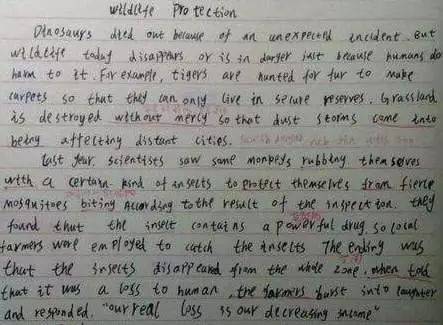 wildlife Protection
Dinosaurs died out because of an unexpected incident. But
wildlife today disappears or is in danger just because humans do
harm to it. For example, tigers are hunted for fur to make
carpets so that they can only live in secure reserves. Grassland
is destroyed without mercy so that dust storms come into
being affecting distant cities.
Last year, scientists saw some monkeys rubbing themselves
with a certain kind of insects to protect themselves from fierce
mosquitoes biting According to the result of the inspection. they
found that the insect contains a powerful drug, so local
farmers were employed to catch the insects The ending was
that the insects disappeared from the whole zone. when told
that it was a loss to human, the farmers burst into laughter
and responded. "our real loss is our decreasing income"